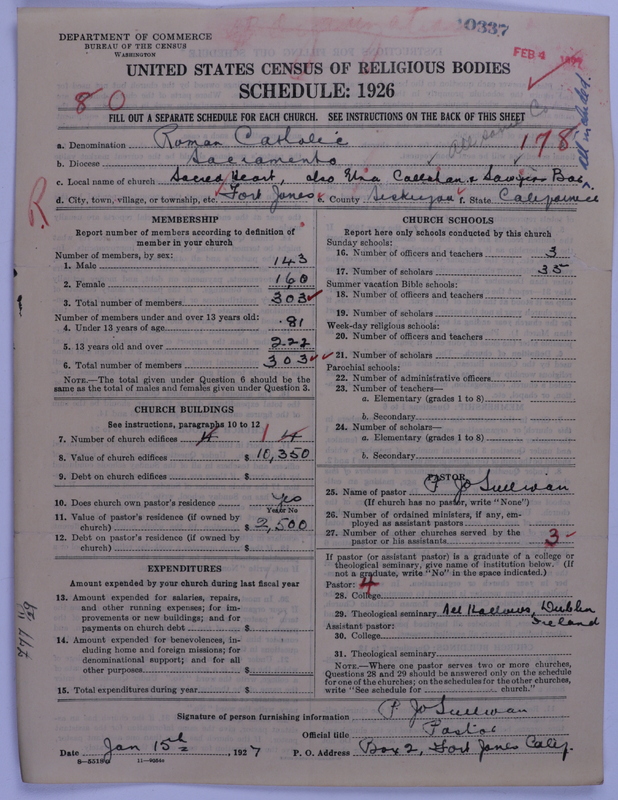 DEPARTMENT OF COMMERCE
BUREAU OF THE CENSUS
WASHINGTON
10337
FEB 4
UNITED STATES CENSUS OF RELIGIOUS BODIES
SCHEDULE: 1926
8 0
FILL OUT A SEPARATE SCHEDULE FOR EACH CHURCH. SEE INSTRUCTIONS ON THE BACK OF THIS SHEET
178
all included.
a. Denomination Roman Catholic
b. Diocese Sacramento
c. Local name of church Sacred Heart, also Etna Callahan & Sawyers Bar
d. City, town, village, or township, etc. Fort Jones e. County Siskiyou f. State California
R
MEMBERSHIP
Report number of members according to definition of
member in your church
Number of members, by sex:
1. Male 143
2. Female 160
3. Total number of members 303
Number of members under and over 13 years old:
4. Under 13 years of age 81
5. 13 years old and over 222
6. Total number of members 303
NOTE.—The total given under Question 6 should be
the same as the total of males and females given under Question 3.
CHURCH BUILDINGS
See instructions, paragraphs 10 to 12
7. Number of church edifices 4 1 4
8. Value of church edifices $ 10,350
9. Debt on church edifices $
10. Does church own pastor's residence yes
Yes or No
11. Value of pastor's residence (if owned by
church) $ 2,500
12. Debt on pastor's residence (if owned by
church) $
EXPENDITURES
Amount expended by your church during last fiscal year
13. Amount expended for salaries, repairs,
and other running expenses; for im-
provements or new buildings; and for
payments on church debt $
14. Amount expended for benevolences, in-
cluding home and foreign missions; for
denominational support; and for all
other purposes $
15. Total expenditures during year $
CHURCH SCHOOLS
Report here only schools conducted by this church
Sunday schools:
16. Number of officers and teachers 3
17. Number of scholars 35
Summer vacation Bible schools:
18. Number of officers and teachers
19. Number of scholars
Week-day religious schools:
20. Number of officers and teachers
21. Number of scholars
Parochial schools:
22. Number of administrative officers
23. Number of teachers—
a. Elementary (grades 1 to 8)
b. Secondary
24. Number of scholars—
a. Elementary (grades 1 to 8)
b. Secondary
PASTOR
25. Name of pastor P J O'Sullivan
(If church has no pastor, write "None")
26. Number of ordained ministers, if any, em-
ployed as assistant pastors
27. Number of other churches served by the
pastor or his assistants 3
If pastor (or assistant pastor) is a graduate of a college or
theological seminary, give name of institution below. (If
not a graduate, write "No" in the space indicated.)
Pastor: 4
28. College
29. Theological seminary All Hallows, Dublin
Ireland
Assistant pastor:
30. College
31. Theological seminary
NOTE.—Where one pastor serves two or more churches,
Questions 28 and 29 should be answered only on the schedule
for one of the churches; on the schedules for the other churches,
write "See schedule for church."
Signature of person furnishing information P J O'Sullivan
Official title Pastor
Date Jan 15th, 1927 P. O. Address Box 2, Fort Jones Calif.